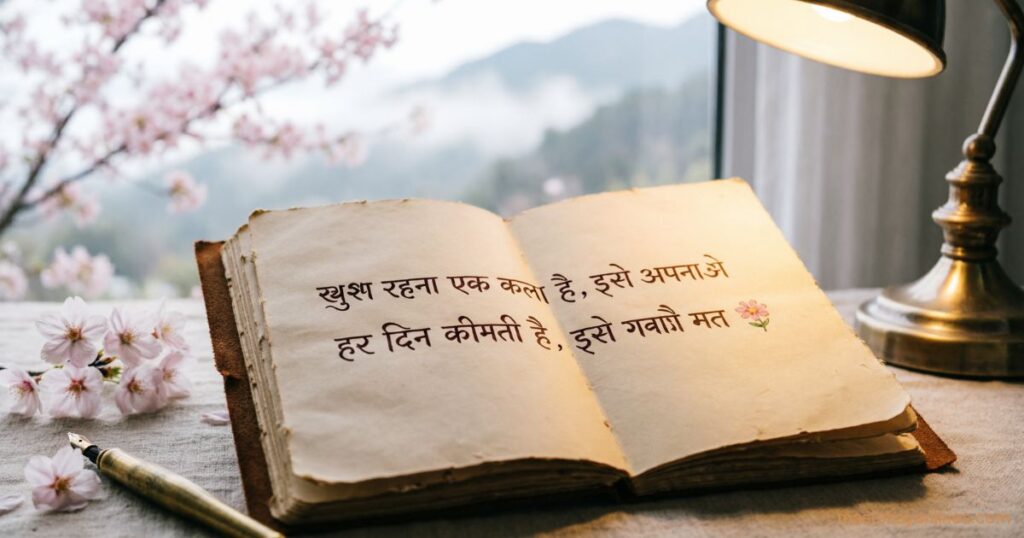 खुश रहना एक कला है, इसे अपनाओ
हर दिन कीमती है, इसे गवाओ मत